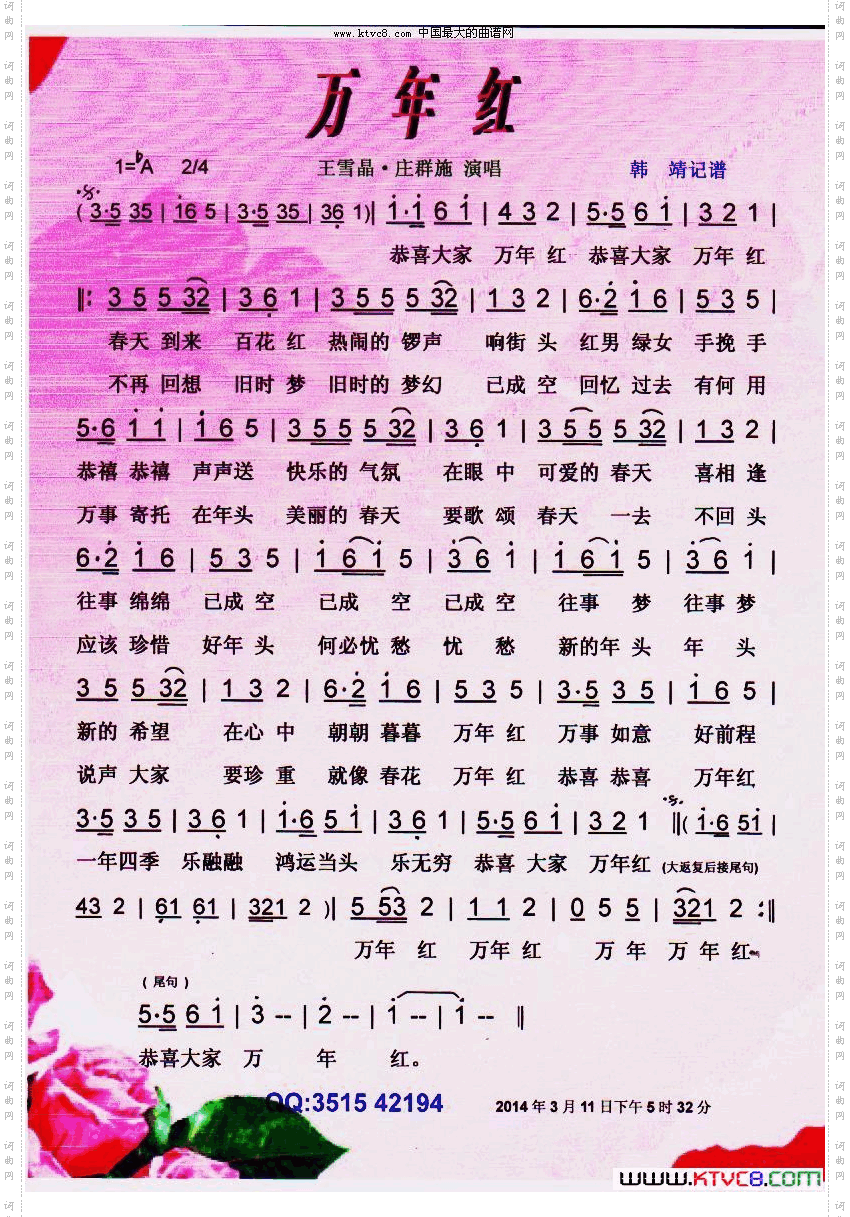 www.ktvc8.com 中国最大的曲谱网
万年红
1=♭A 2/4 王雪晶·庄群施 演唱 韩 靖记谱
(3·5 35 | i6 5 | 3·5 35 | 36 1)| i·i 6 i | 4 3 2 | 5·5 6 i | 3 2 1 |
恭喜大家 万年 红 恭喜大家 万年 红
‖: 3 5 5 32 | 3 6 1 | 3 5 5 5 32 | 1 3 2 | 6·2 i 6 | 5 3 5 |
春天 到来 百花 红 热闹的 锣声 响街 头 红男 绿女 手挽 手
不再 回想 旧时 梦 旧时的 梦幻 已成 空 回忆 过去 有何 用
5·6 i i | i 6 5 | 3 5 5 5 32 | 3 6 1 | 3 5 5 5 32 | 1 3 2 |
恭禧 恭禧 声声送 快乐的 气氛 在眼 中 可爱的 春天 喜相 逢
万事 寄托 在年头 美丽的 春天 要歌 颂 春天 一去 不回 头
6·2 i 6 | 5 3 5 | i 6 i 5 | 3 6 i | i 6 i 5 | 3 6 i |
往事 绵绵 已成 空 已成 空 已成 空 往事 梦 往事 梦
应该 珍惜 好年 头 何必忧 愁 忧 愁 新的年 头 年 头
3 5 5 32 | 1 3 2 | 6·2 i 6 | 5 3 5 | 3·5 3 5 | i 6 5 |
新的 希望 在心 中 朝朝 暮暮 万年 红 万事 如意 好前程
说声 大家 要珍 重 就像 春花 万年 红 恭喜 恭喜 万年红
3·5 3 5 | 3 6 1 | i·6 5 i | 3 6 1 | 5·5 6 i | 3 2 1 ‖( i·6 5i |
一年四季 乐融融 鸿运当头 乐无穷 恭喜 大家 万年红 (大返复后接尾句)
43 2 | 61 61 | 321 2 )| 5 53 2 | 1 1 2 | 0 5 5 | 321 2 :‖
万年 红 万年 红 万 年 万 年 红
(尾句)
5·5 6 i | 3 -- | 2 -- | i -- | i -- ‖
恭喜大家 万 年 红。
QQ:3515 42194 2014年3月11日下午5时32分
www.KTVC8.com
词曲网